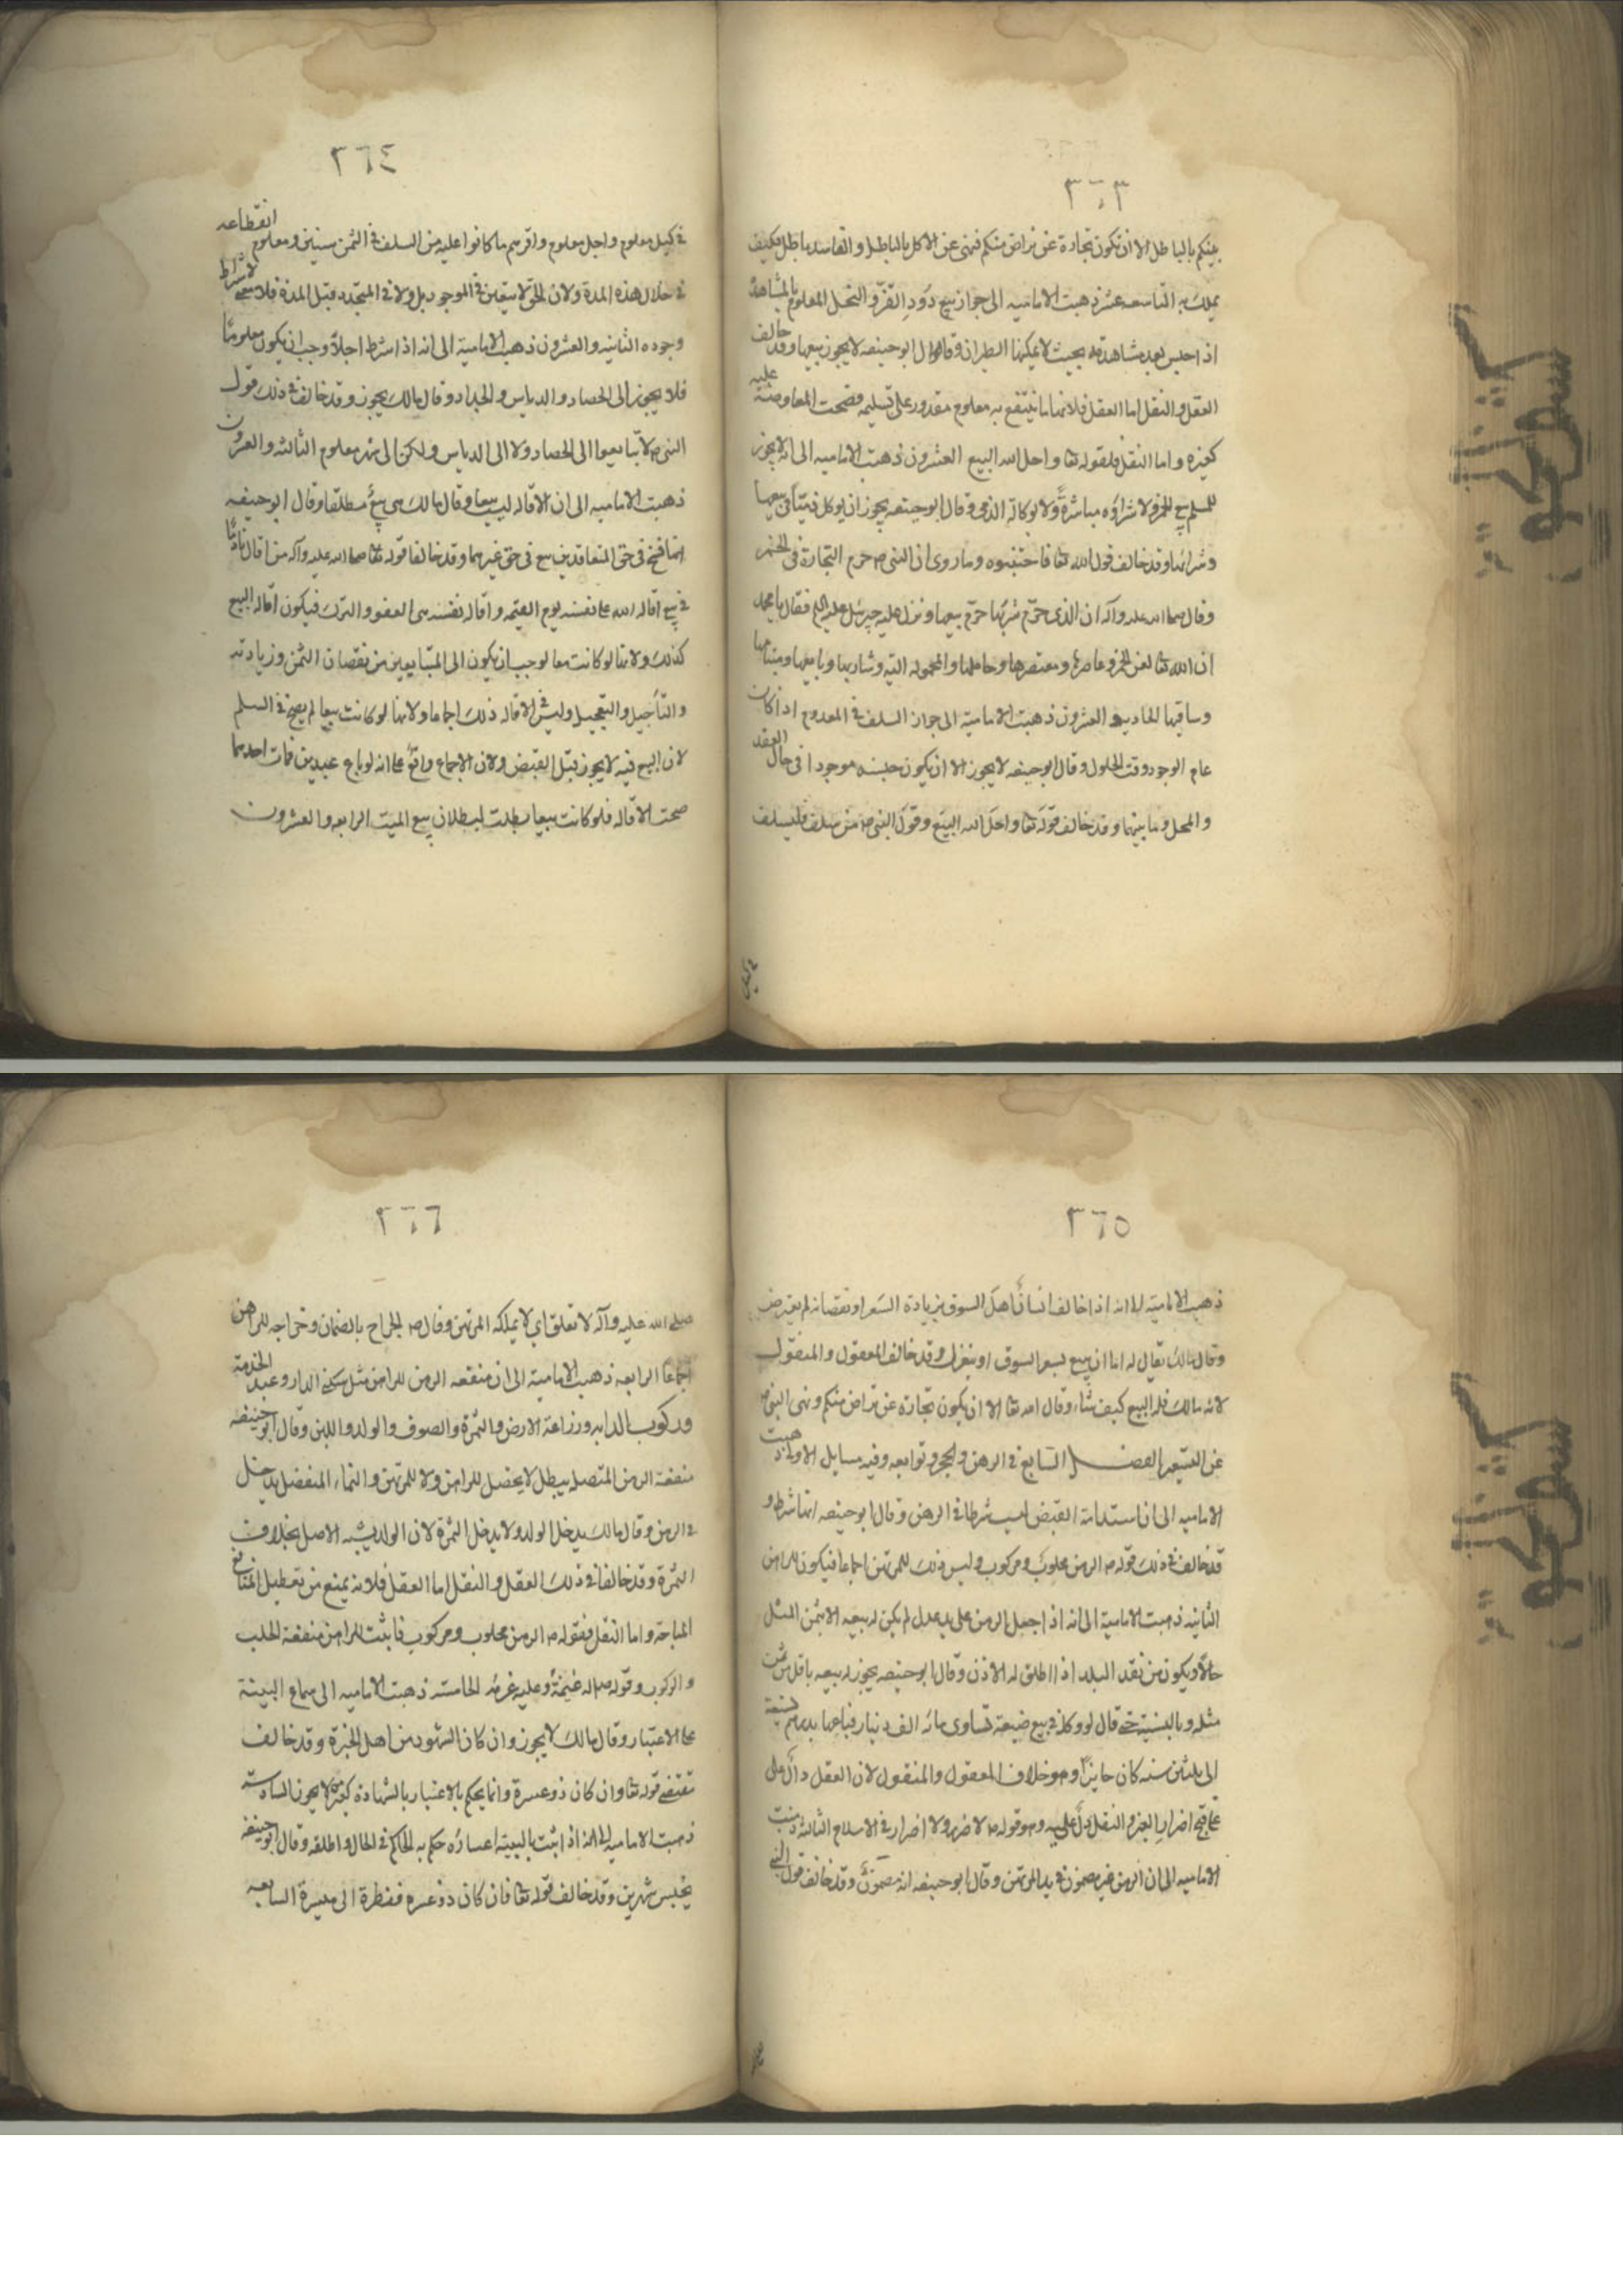 ٣٦٣
بينكم بالباطل الا ان تكون تجارة عن تراض منكم فنهى عن الاكل بالباطل والفاسد باطل فكيف
يملك به التاسعه عشر ذهبت الاماميه الى جواز بيع دود القز والنحل المعلوم بالمشاهدة
اذا حبس بعد مشاهدته بحيث لا يمكنها الطيران وقال ابو حنيفه لا يجوز بيعها وقد خالف
العقل والنقل اما العقل فلانها مما ينتفع به معلوم مقدور على تسليمه فصحت المعاوضة عليه
كغيره واما النقل فلقوله تعا واحل الله البيع العشرون ذهبت الاماميه الى انه لا يجوز
للمسلم بيع الخمر ولا شراؤه مباشرةً ولا بوكالة الذمى وقال ابو حنيفه يجوز ان يوكل ذميّا فى بيعها
وشرائها وقد خالف قول الله تعا فاجتنبوه وما روى ان النبى ص حرم التجارة فى الخمر
وقال صلى الله عليه وآله ان الذى حرّم شربها حرّم بيعها ونزل عليه جبرئيل عليه السلم فقال يا محمد
ان الله تعا لعن الخمر وعاصرها ومعتصرها وحاملها والمحموله اليه وشاربها وبايعها ومبتاعها
وساقيها الحاديه والعشرون ذهبت الاماميّة الى جواز السلف فى المعدوم اذا كان
عام الوجود وقت الحلول وقال ابو حنيفه لا يجوز الا ان يكون جنسه موجودا فى حال العقد
والمحل وما بينهما وقد خالف قوله تعا واحل الله البيع وقول النبى ص من سلف فليسلف
فى كيل
٣٦٤
فى كيل معلوم واجل معلوم واقرهم ما كانوا عليه من السلف فى الثمر سنين ومعلوم انقطاعه
فى خلال هذه المدة ولان الحق لا يتعين فى الموجود بل ولا فى المتجدد قبل المدة فلا معنى لاشراط
وجوده الثانيه والعشرون ذهبت الامامية الى انه اذا شرط اجلا وجب ان يكون معلومًا
فلا يجوز الى الحصاد والدياس والجداد وقال مالك يجوز وقد خالف فى ذلك قول
النبى ص لا تبايعوا الى الحصاد ولا الى الدياس ولكن الى شهر معلوم الثالثه والعشرون
ذهبت الاماميه الى ان الاقاله ليست بيعا وقال مالك هى بيعٌ مطلقا وقال ابو حنيفه
انها فسخ فى حق المتعاقدين بيع فى حق غيرهما وقد خالفا قوله تعا صلى الله عليه وآله من اقال نادمًا
فى بيع اقاله الله على نفسه يوم القيمه واقاله نفسه هى العفو والترك فيكون اقاله البيع
كذلك ولانها لو كانت بيعا لوجب ان يكون الى المتبايعين من نقصان الثمن وزيادته
والتأجيل والتعجيل وليس فى الاقاله ذلك اجماعا ولانها لو كانت بيعا لم يصح فى السلم
لان البيع فيه لا يجوز قبل القبض ولان الاجماع واقع على انه لو باع عبدين فمات احدهما
صحت الاقاله فلو كانت بيعا بطلت لبطلان بيع الميت الرابعه والعشرون
٣٦٥
ذهبت الاماميّة الى انه اذا خالف انسانًا اهل السوق بزيادة السعر او نقصانه لم يعترض
وقال مالك يقال له اما ان تبيع بسعر السوق او ينعزل وقد خالف المعقول والمنقول
لانه مالك فله البيع كيف شاء وقال الله تعا الا ان يكون تجارة عن تراض منكم ونهى النبى ص
عن التسعير الفصل السابع فى الرهن والحجر وتوابعه وفيه مسايل الاولى ذهبت
الاماميه الى ان استدامة القبض ليست شرطا فى الرهن وقال ابو حنيفه انها شرط و
قد خالف فى ذلك قوله ص الرهن محلوب ومركوب وليس ذلك للمرتهن اجماعا فيكون للراهن
الثانيه ذهبت الاماميه الى انه اذا جعل الرهن على يد عدل لم يكن له بيعه الا بثمن المثل
حالا ويكون من نقد البلد اذا اطلق له الاذن وقال ابو حنيفه يجوز له بيعه باقل من ثمن
مثله وبالنسيّة حتى قال لو وكله فى بيع ضيعة تساوى مائه الف دينار فباعها بدرهم نسيئة
الى ثلثين سنه كان جايزًا وهو خلاف المعقول والمنقول لان العقل دالٌ على
على قبح اضرار الغير والنقل دلّ عليه وهو قوله ص لا ضرر ولا اضرار فى الاسلام الثالثه ذهبت
الاماميه الى ان الرهن غير مضمون فى يد المرتهن وقال ابو حنيفه انه مضمونٌ وقد خالف قول النبى
٣٦٦
صلى الله عليه وآله لا تغلق اى لا يملكه المرتهن وقال ص الخراج بالضمان وخراجه للراهن
اجماعا الرابعه ذهبت الامامية الى ان منفعه الرهن للراهن مثل سكنى الدار وعبد الخدمة
وركوب الدابه وزراعة الارض والثمرة والصوف والولد واللبن وقال ابو حنيفه
منفعة الرهن المتصلة يبطل لا يحصل للراهن ولا للمرتهن والنماء المنفصل يدخل
فى الرهن وقال مالك يدخل الولد ولا يدخل الثمرة لان الولد يشبه الاصل بخلاف
الثمرة وقد خالفا فى ذلك العقل والنقل اما العقل فلانه يمنع من تعطيل المنافع
المباحة واما النقل فقوله ص الرهن محلوب ومركوب فاثبت للراهن منفعة الحلب
والركوب وقوله ص له غنمهُ وعليه غرمهُ الخامسه ذهبت الاماميه الى سماع البينة
على الاعتبار وقال مالك لا يجوز وان كان الشهود من اهل الخبرة وقد خالف
مقتضى قوله تعا وان كان ذو عسرة وانما يحكم بالاعتبار بالشهادة كغيره لا يجوز السادسة
ذهبت الاماميه الى انه اذا ثبت بالبينه اعساره حكم به الحاكم فى الحال واطلقه وقال ابو حنيفه
يحبس شهرين وقد خالف قوله تعا فان كان ذو عسره فنظرة الى ميسرة السابعه